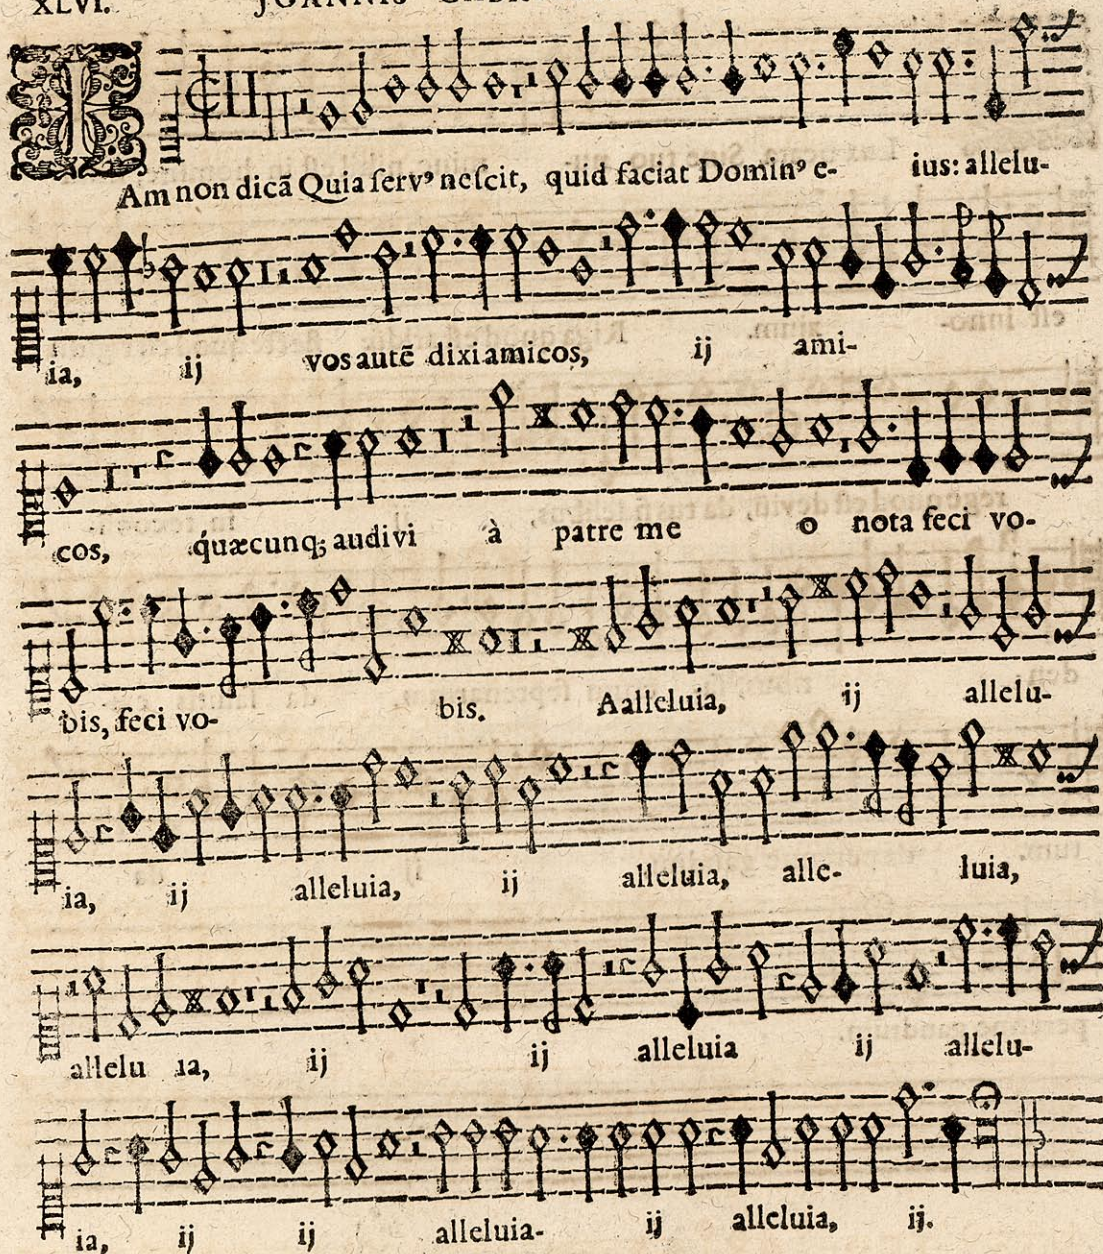 XLVI. JOANNIS
I
Am non dicã Quia ſervꝰ neſcit, quid faciat Dominꝰ e- ius: allelu-
ia, ij vos autẽ dixi amicos, ij ami-
cos, quæcunq; audivi à patre me o nota feci vo-
bis, feci vo- bis. Aalleluia, ij allelu-
ia, ij alleluia, ij alleluia, alle- luia,
allelu ia, ij ij alleluia ij allelu-
ia, ij ij alleluia- ij alleluia, ij.